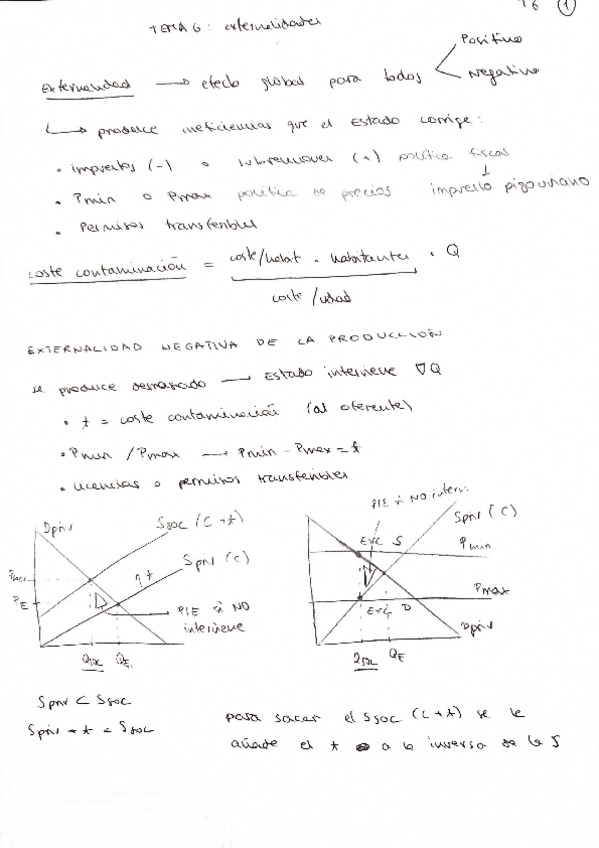 T6 1
TEMA 6: externalidades
Positivo
Externalidad → efecto global para todos
Negativo
↳ produce ineficiencias que el Estado corrige:
• impuestos (-) o subvenciones (+) política fiscal
↓
• Pmin o Pmax política de precios impuesto pigouviano
• Permisos transferibles
coste contaminación = coste/habit · habitantes · Q
coste/udad
EXTERNALIDAD NEGATIVA DE LA PRODUCCIÓN
se produce demasiado → Estado interviene ∇Q
• t = coste contaminación (al oferente)
• Pmin / Pmax → Pmin - Pmax = t
• licencias o permisos transferibles
PIE si NO interv.
Dpriv
Ssoc (C+t)
Spriv (C)
Exc S
Pmin
Spriv (C)
↑ t
Psoc
PE
PIE si NO
interviene
Pmax
Exc D
Dpriv
Qsoc QE
Qsoc QE
Spriv < Ssoc
Spriv + t = Ssoc
para sacar el Ssoc (C+t) se le
añade el t a la inversa de la S